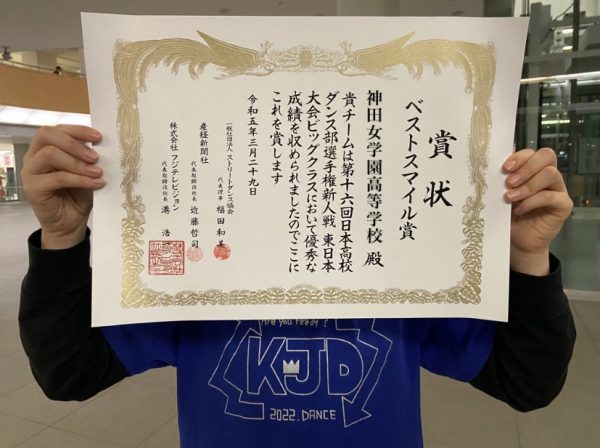 賞状
ベストスマイル賞
神田女学園高等学校 殿
貴チームは第十六回日本高校
ダンス部選手権新人戦 東日本
大会ビッグクラスにおいて優秀な
成績を収められましたのでここに
これを賞します
令和五年三月二十九日
一般社団法人 ストリートダンス協会
代表理事 福田和美
産経新聞社
代表取締役社長 近藤哲司
株式会社フジテレビジョン
代表取締役社長 港 浩
Are you ready?
KJD
2022.DANCE